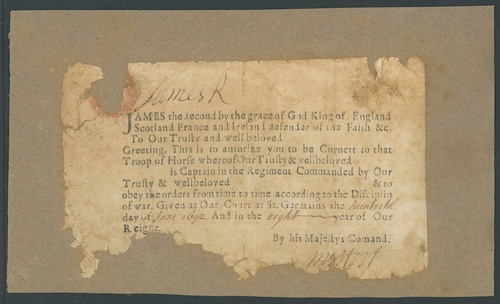 James R
JAMES the second by the grace of God King of England
Scotland France and Ireland defender of the Faith &c.
To Our Trusty and well beloved
Greeting. This is to autorize you to be Curnett to that
Troop of Horse whereof Our Trusty & wellbeloved
is Captain in the Regiment Commanded by Our
Trusty & wellbeloved & to
obey the orders from time to time according to the Disciplin
of war. Given at Our Court at St. Germains the twentieth
day of June 1692 And in the eight year of Our
Reigne.
By his Majestys Comand.